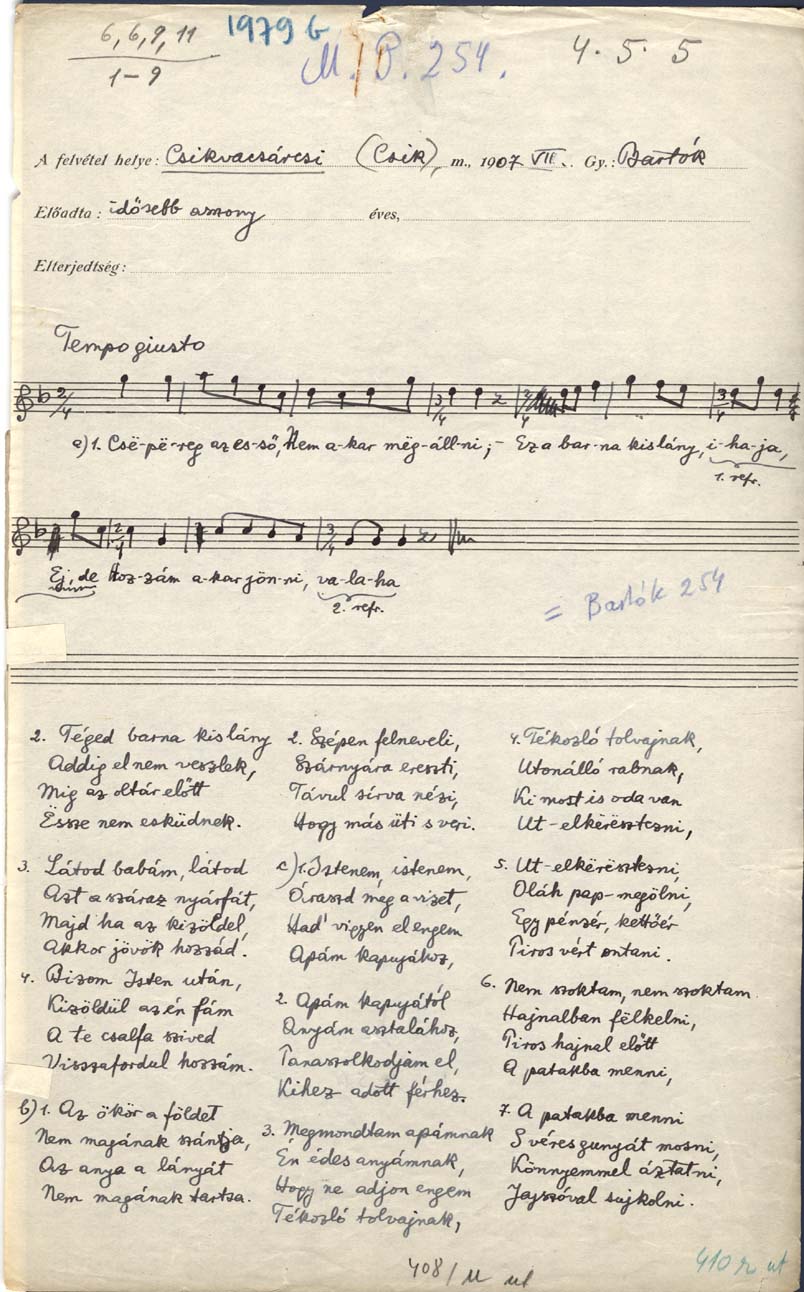 6, 6, 9, 11
1-9
1979 b
M. B. 254.
4. 5. 5
A felvétel helye: Csikvacsárcsi (Csik), m., 1907 VII. Gy.: Bartók
Előadta: idősebb asszony éves,
Elterjedtség:
Tempo giusto
2/4 3/4 2/4 3/4
a) 1. Csë-pë-reg az es-ső, Nem a-kar mëg-áll-ni; - Ez a bar-na kislány, i-ha-ja,
1. refr.
2/4 3/4
Ej, de Hoz-zám a-kar jön-ni, va-la-ha
2. refr.
= Bartók 254
2. Téged barna kislány
Addig el nem veszlek,
Mig az oltár előtt
Össze nem esküdnek.
3. Látod babám, látod
Azt a száraz nyárfát,
Majd ha az kizöldel,
Akkor jövök hozzád.
4. Bizom Isten után,
Kizöldül az én fám
A te csalfa szived
Visszafordul hozzám.
b) 1. Az ökör a földet
Nem magának szántja,
Az anya a lányát
Nem magának tartsa.
2. Szépen felneveli,
Szárnyára ereszti,
Távul sírva nézi,
Hogy más üti s veri.
c) 1. Istenem, istenem,
Áraszd meg a vizet,
Had' vigyen el engem
Apám kapujához,
2. Apám kapujától
Anyám asztalához,
Panaszolkodjam el,
Kihez adott férhez.
3. Megmondtam apámnak
Én édes anyámnak,
Hogy ne adjon engem
Tékozló tolvajnak,
4. Tékozló tolvajnak,
Utonálló rabnak,
Ki most is oda van
Ut-elkérësztezni,
5. Ut-elkérësztezni,
Oláh pap-megölni,
Egy pénzér, kettőér
Piros vért ontani.
6. Nem szoktam, nem szoktam
Hajnalban fëlkelni,
Piros hajnal előtt
A patakba menni,
7. A patakba menni
S véres gunyát mosni,
Könnyemmel áztatni,
Jajszóval sujkolni.
408/
410